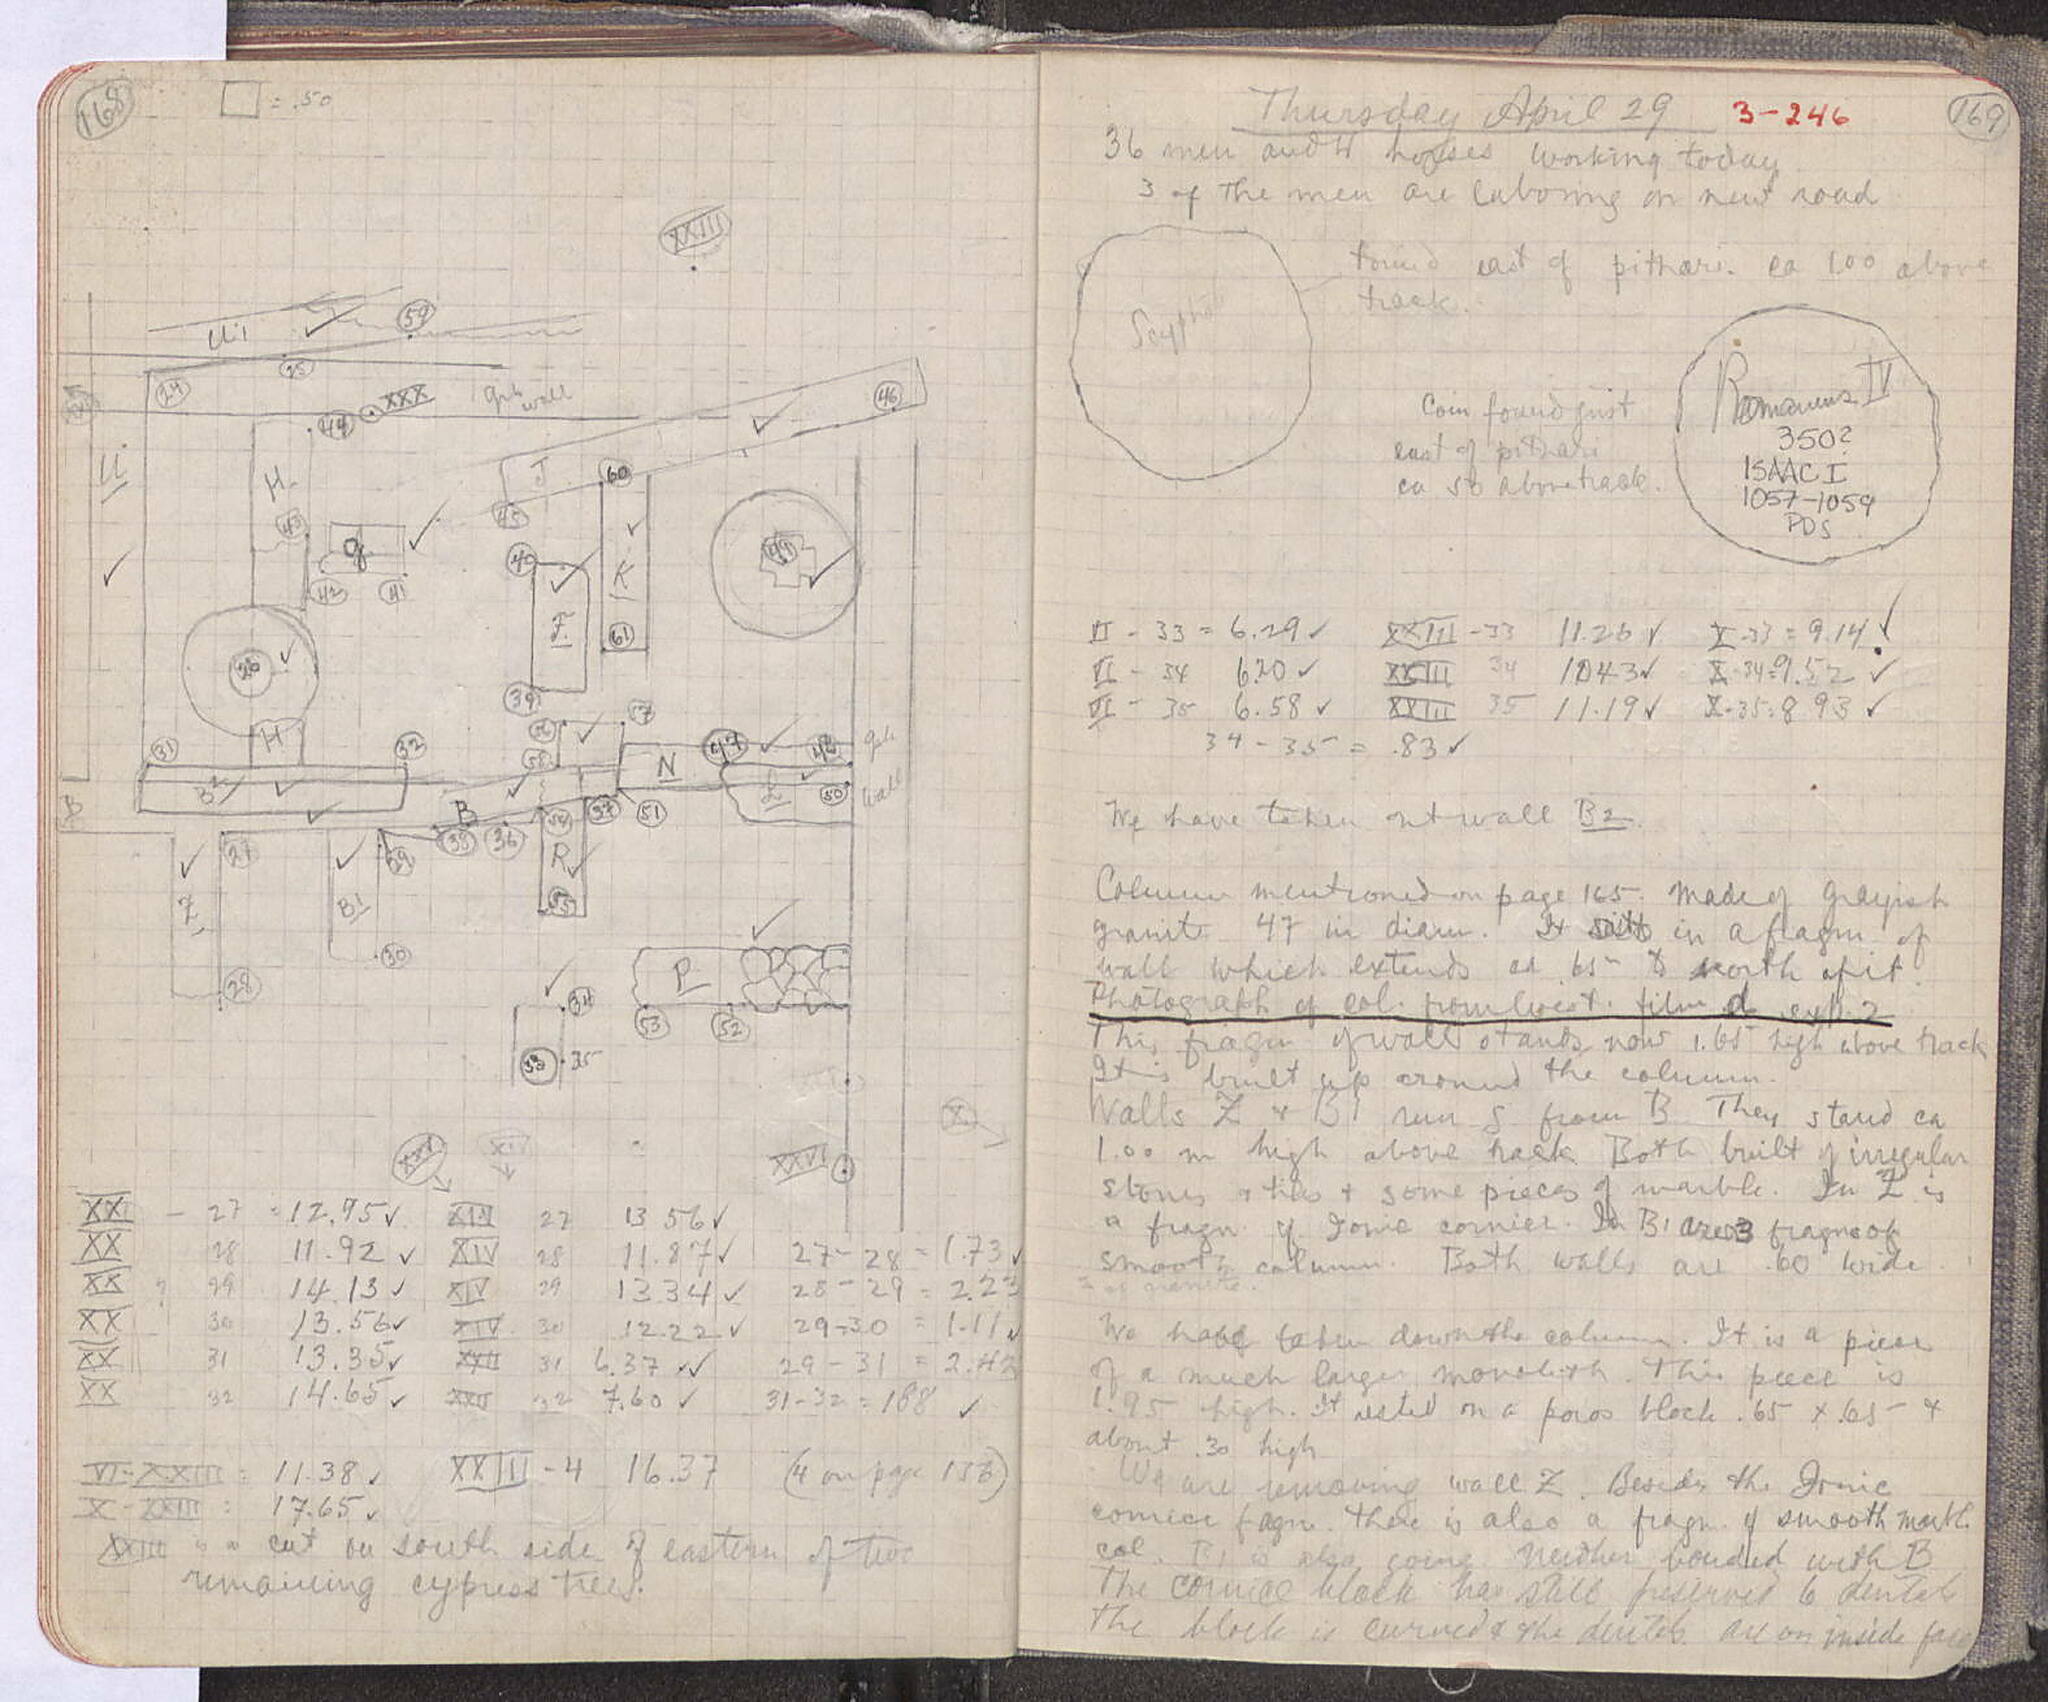 168
= .50
XXIII
Ui1
59
25
24
XXX
44
Gk wall
46
Ui
H
J
60
43
45
g
42
41
40
K
49
F
61
26
39
57
H
31
32
58
N
47
48
Gk
wall
B2
B
L
50
38
36
54
37
51
27
29
R
Z
B1
55
30
28
P
34
53
52
33
35
X
XXV
XI
XXVI
XXI - 27 = 12.95 XIV 27 13 56
XX 28 11.92 XIV 28 11.87 27 - 28 = 1.73
XX 29 14.13 XIV 29 13 34 28 - 29 = 2.23
XX 30 13.56 XIV 30 12.22 29-30 = 1.11
XX 31 13.35 XXII 31 6.37 29 - 31 = 2.43
XX 32 14.65 XXII 32 7.60 31-32 = 188
VI-XXIII = 11.38 XXIII - 4 16.37 (4 on page 156)
X-XXIII = 17.65
XXIII is a cut on south side of eastern of two
remaining cypress trees.
Thursday April 29 3-246 169
36 men and 4 horses working today
3 of the men are laboring on new road
Scyphate
found east of pithari. ca 1.00 above
track.
Coin found just
east of pithari
ca 50 above track.
Romanus IV
350?
ISAAC I
1057-1059
PDS
VI - 33 = 6.29 XXIII - 33 11.26 X-33 = 9.14
VI - 34 6.20 XXIII 34 10 43 X-34=9.52
VI - 35 6.58 XXIII 35 11.19 X-35=8 93
34 - 35 = .83
We have taken out wall B2.
Column mentioned on page 165. Made of grayish
granite 47 in diam. It sits in a fragm. of
wall which extends ca 65 to north of it.
Photograph of col. from west. film d exp. 2
This fragm of wall stands now 1.65 high above track
It is built up around the column.
Walls Z & B1 run S from B. They stand ca
1.00 m high above track. Both built of irregular
stones & tiles & some pieces of marble. In Z is
a fragm of Ionic cornice. In B1 are 3 fragms of
smooth column. Both walls are .60 wide
of granite.
We have taken down the column. It is a piece
of a much larger monolith. This piece is
1.95 high. It rested on a poros block .65 x .65 &
about .30 high
We are removing wall Z. Beside the Ionic
cornice fagm. there is also a fragm. of smooth marb.
col. B1 is also going. Neither bonded with B
The cornice block has still preserved 6 dentals
The block is curved & the dentals are on inside face